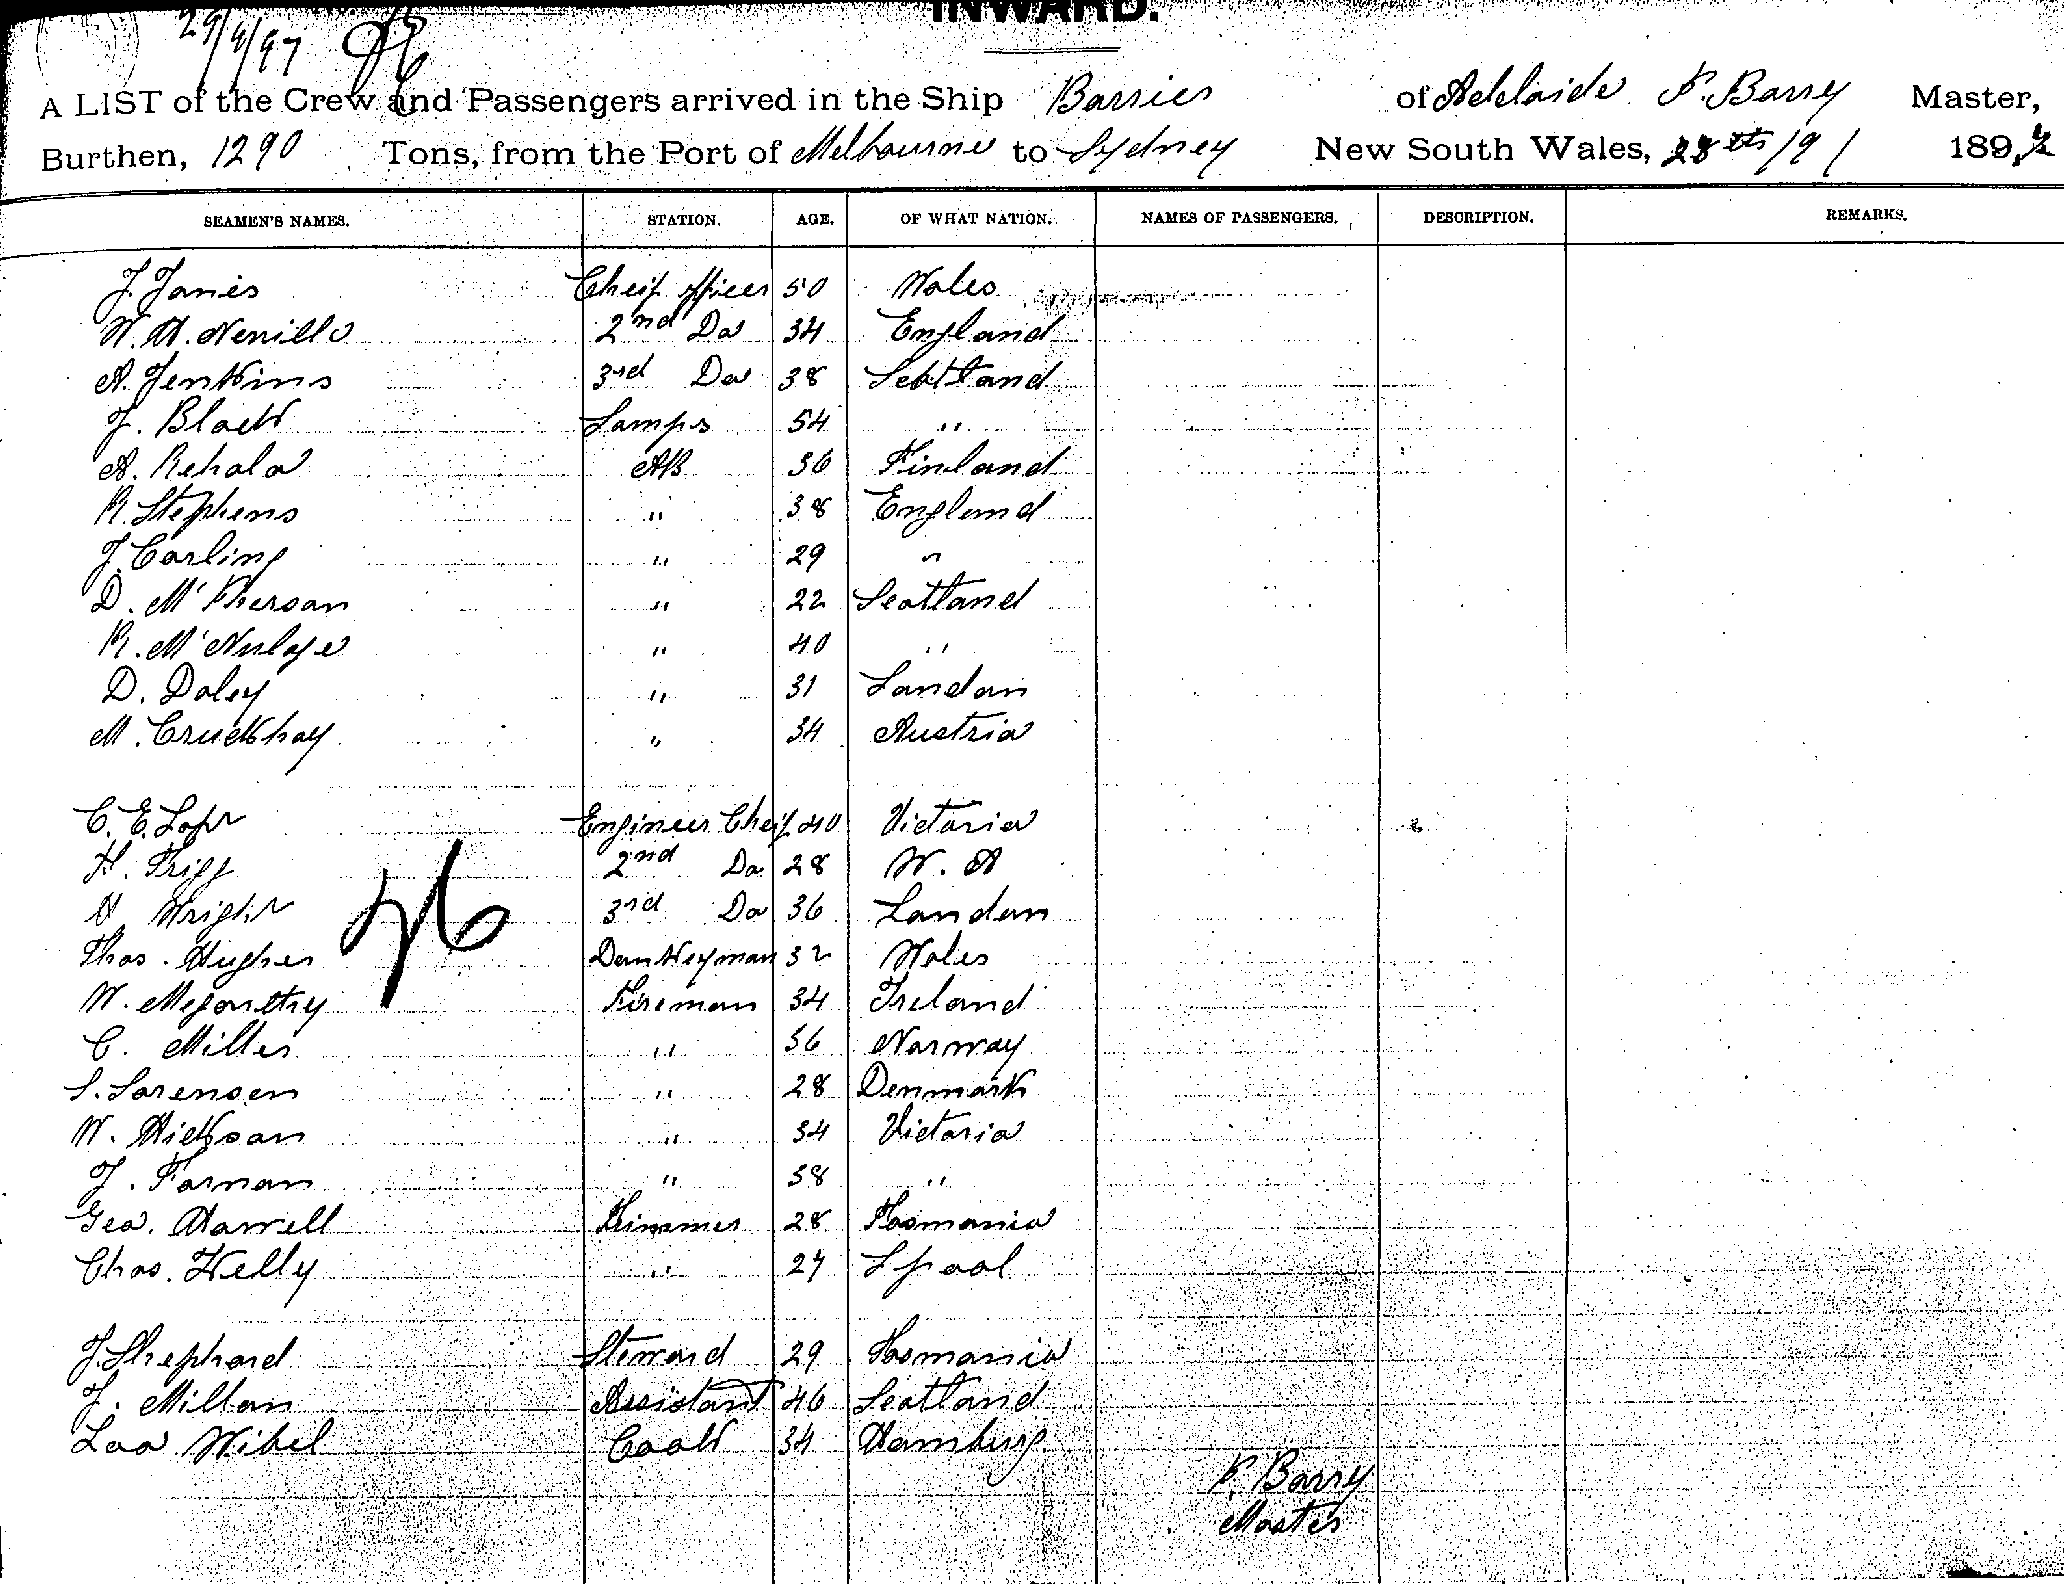 INWARD.
29/9/97
A LIST of the Crew and Passengers arrived in the Ship Barrier of Adelaide P. Barry Master,
Burthen, 1290 Tons, from the Port of Melbourne to Sydney New South Wales, 28th/9/ 1897
SEAMEN'S NAMES. STATION. AGE. OF WHAT NATION. NAMES OF PASSENGERS. DESCRIPTION. REMARKS.
J. Jones Cheif officer 50 Wales
W. H. Nevill 2nd Do 34 England
A. Jenkins 3rd Do 38 Scotland
J. Black Lamps 54 "
A. Rehola AB 36 Finland
R. Stephens " 38 England
J. Carling " 29 "
D. McPherson " 22 Scotland
R. " 40 "
D. Daley " 31 London
M. Cruckhay " 34 Austria
C. E. Engineer Cheif 40 Victoria
H. Trigg 2nd Do 28 W. A
A Wright 3rd Do 36 London
Thos. Hughes Donkeyman 32 Wales
W. Fireman 34 Ireland
C. Miller " 36 Norway
S. Sorensen " 28 Denmark
W. Hickson " 34 Victoria
J. Farnan " 38 "
Geo. Harrell Trimmer 28 Tasmania
Chas. Kelly " 27 Lpool
26
J. Shephard Steward 29 Tasmania
J. Millan Assistant 46 Scotland
Leo Wibel Cook 34 Hamburg
P. Barry
Master